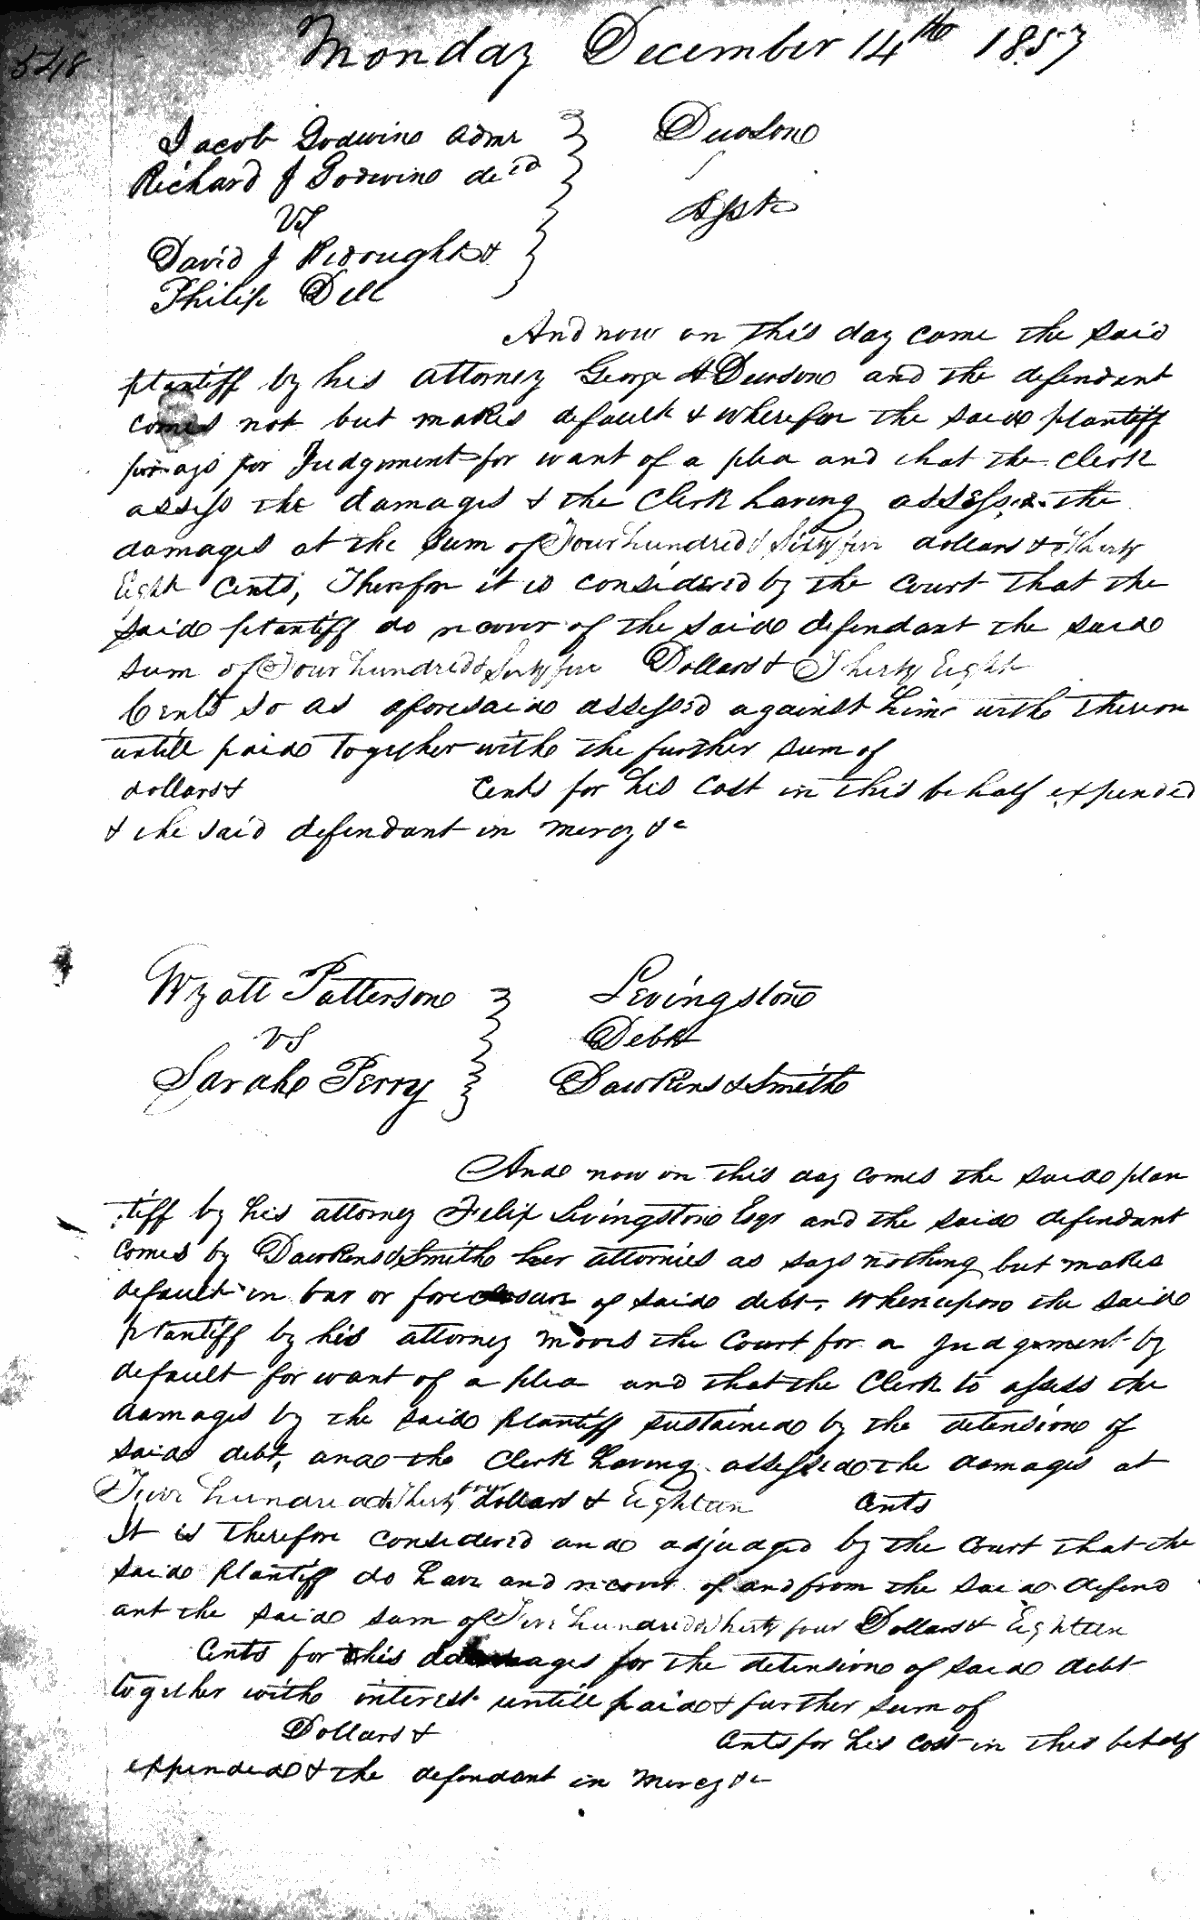 548
Monday December 14th 1857
Jacob Godwin admr } Dewson
Richard J Godwin decd
vs } Asst
David J Redought &
Philip Dell
And now on this day came the said
plantiff by his attorney George A Dewson and the defendant
comes not but makes default & wherefor the said plantiff
prays for Judgment for want of a plea and that the Clerk
assess the damages & the Clerk having assessed the
damages at the sum of Four hundred & Sixty five dollars & Thirty
Eight Cents, Therefor it is considered by the Court that the
said plantiff do recover of the said defendant the said
sum of Four hundred & Sixty five Dollars & Thirty Eight
Cents so as aforesaid assessed against him with thereon
untill paid together with the further sum of
dollars & Cents for his Cost in this behalf expended
& the said defendant in mercy &c
Wyatt Patterson } Levingston
vs } Debt
Sarah Perry } Dawkins & Smith
And now on this day comes the said plan
tiff by his attorney Felix Livingston Esqr and the said defendant
comes by Dawkins & Smith her attornies as says nothing but makes
default in bar or foreclosure of said debt. Whereupon the said
plantiff by his attorney moves the Court for a Judgement by
default for want of a plea and that the Clerk to assess the
damages by the said plantiff sustained by the detension of
said debt, and the Clerk having assessed the damages at
Five hundred & Thirty four dollars & Eighteen Cents
It is therefore considered and adjudged by the Court that the
said plantiff do have and recover of and from the said defend
ant the said sum of Five hundred & Thirty four Dollars & Eighteen
Cents for his damages for the detension of said debt
together with interest untill paid & further sum of
Dollars & Cents for his cost in this behalf
expended & the defendant in mercy &c